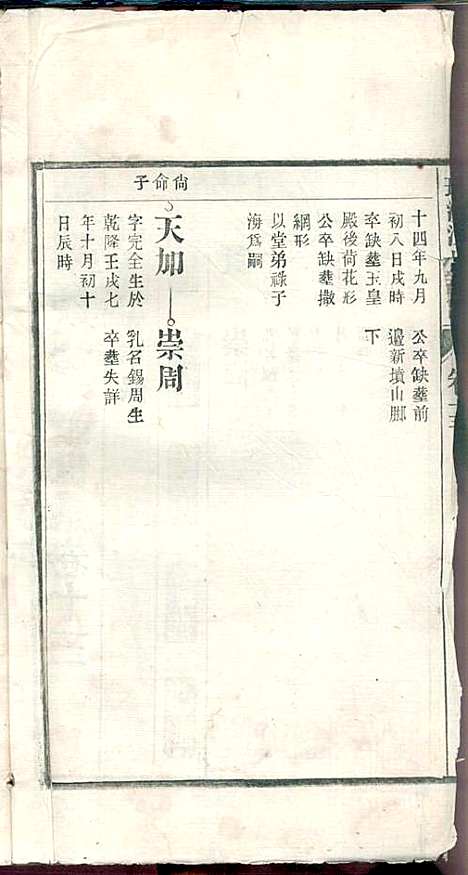 尙命子
十四年九月
初八日戌時
卒缺塟玉皇
殿後荷花形
公卒缺塟撒
網形
以堂弟祿子
海爲嗣
公卒缺塟前
邉新墳山脚
下
天加
字完全生於
乾隆壬戌七
年十月初十
日辰時
崇周
乳名錫周生
卒塟失詳